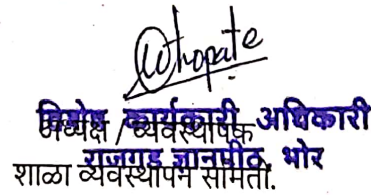 Thopate
विशेष कार्यकारी अधिकारी
अध्यक्ष / व्यवस्थापक
राजगड ज्ञानपीठ, भोर
शाळा व्यवस्थापन समिती.